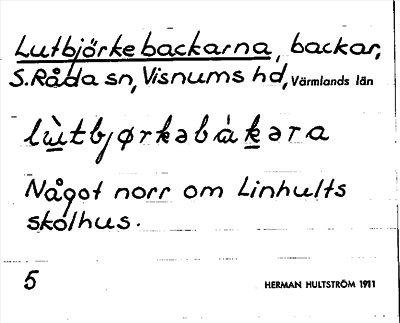 Lutbjörkebackarna, backar,
S. Råda sn, Visnums hd, Värmlands län
lùtbjørkəbàkəra
Något norr om Linhults
skolhus.
5 HERMAN HULTSTRÖM 1911